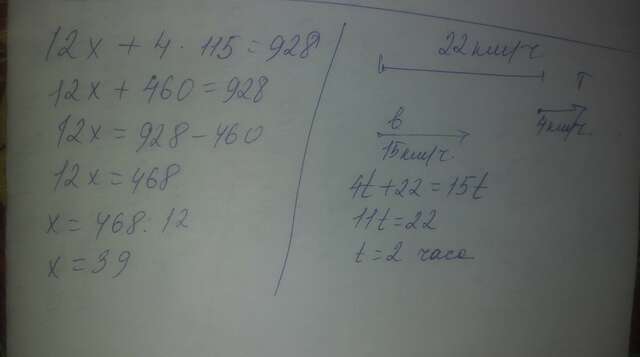 12x + 4 · 115 = 928
12x + 460 = 928
12x = 928 - 460
12x = 468
x = 468 : 12
x = 39
22 км/ч
т
4 км/ч.
в
15 км/ч.
4t + 22 = 15t
11t = 22
t = 2 часа